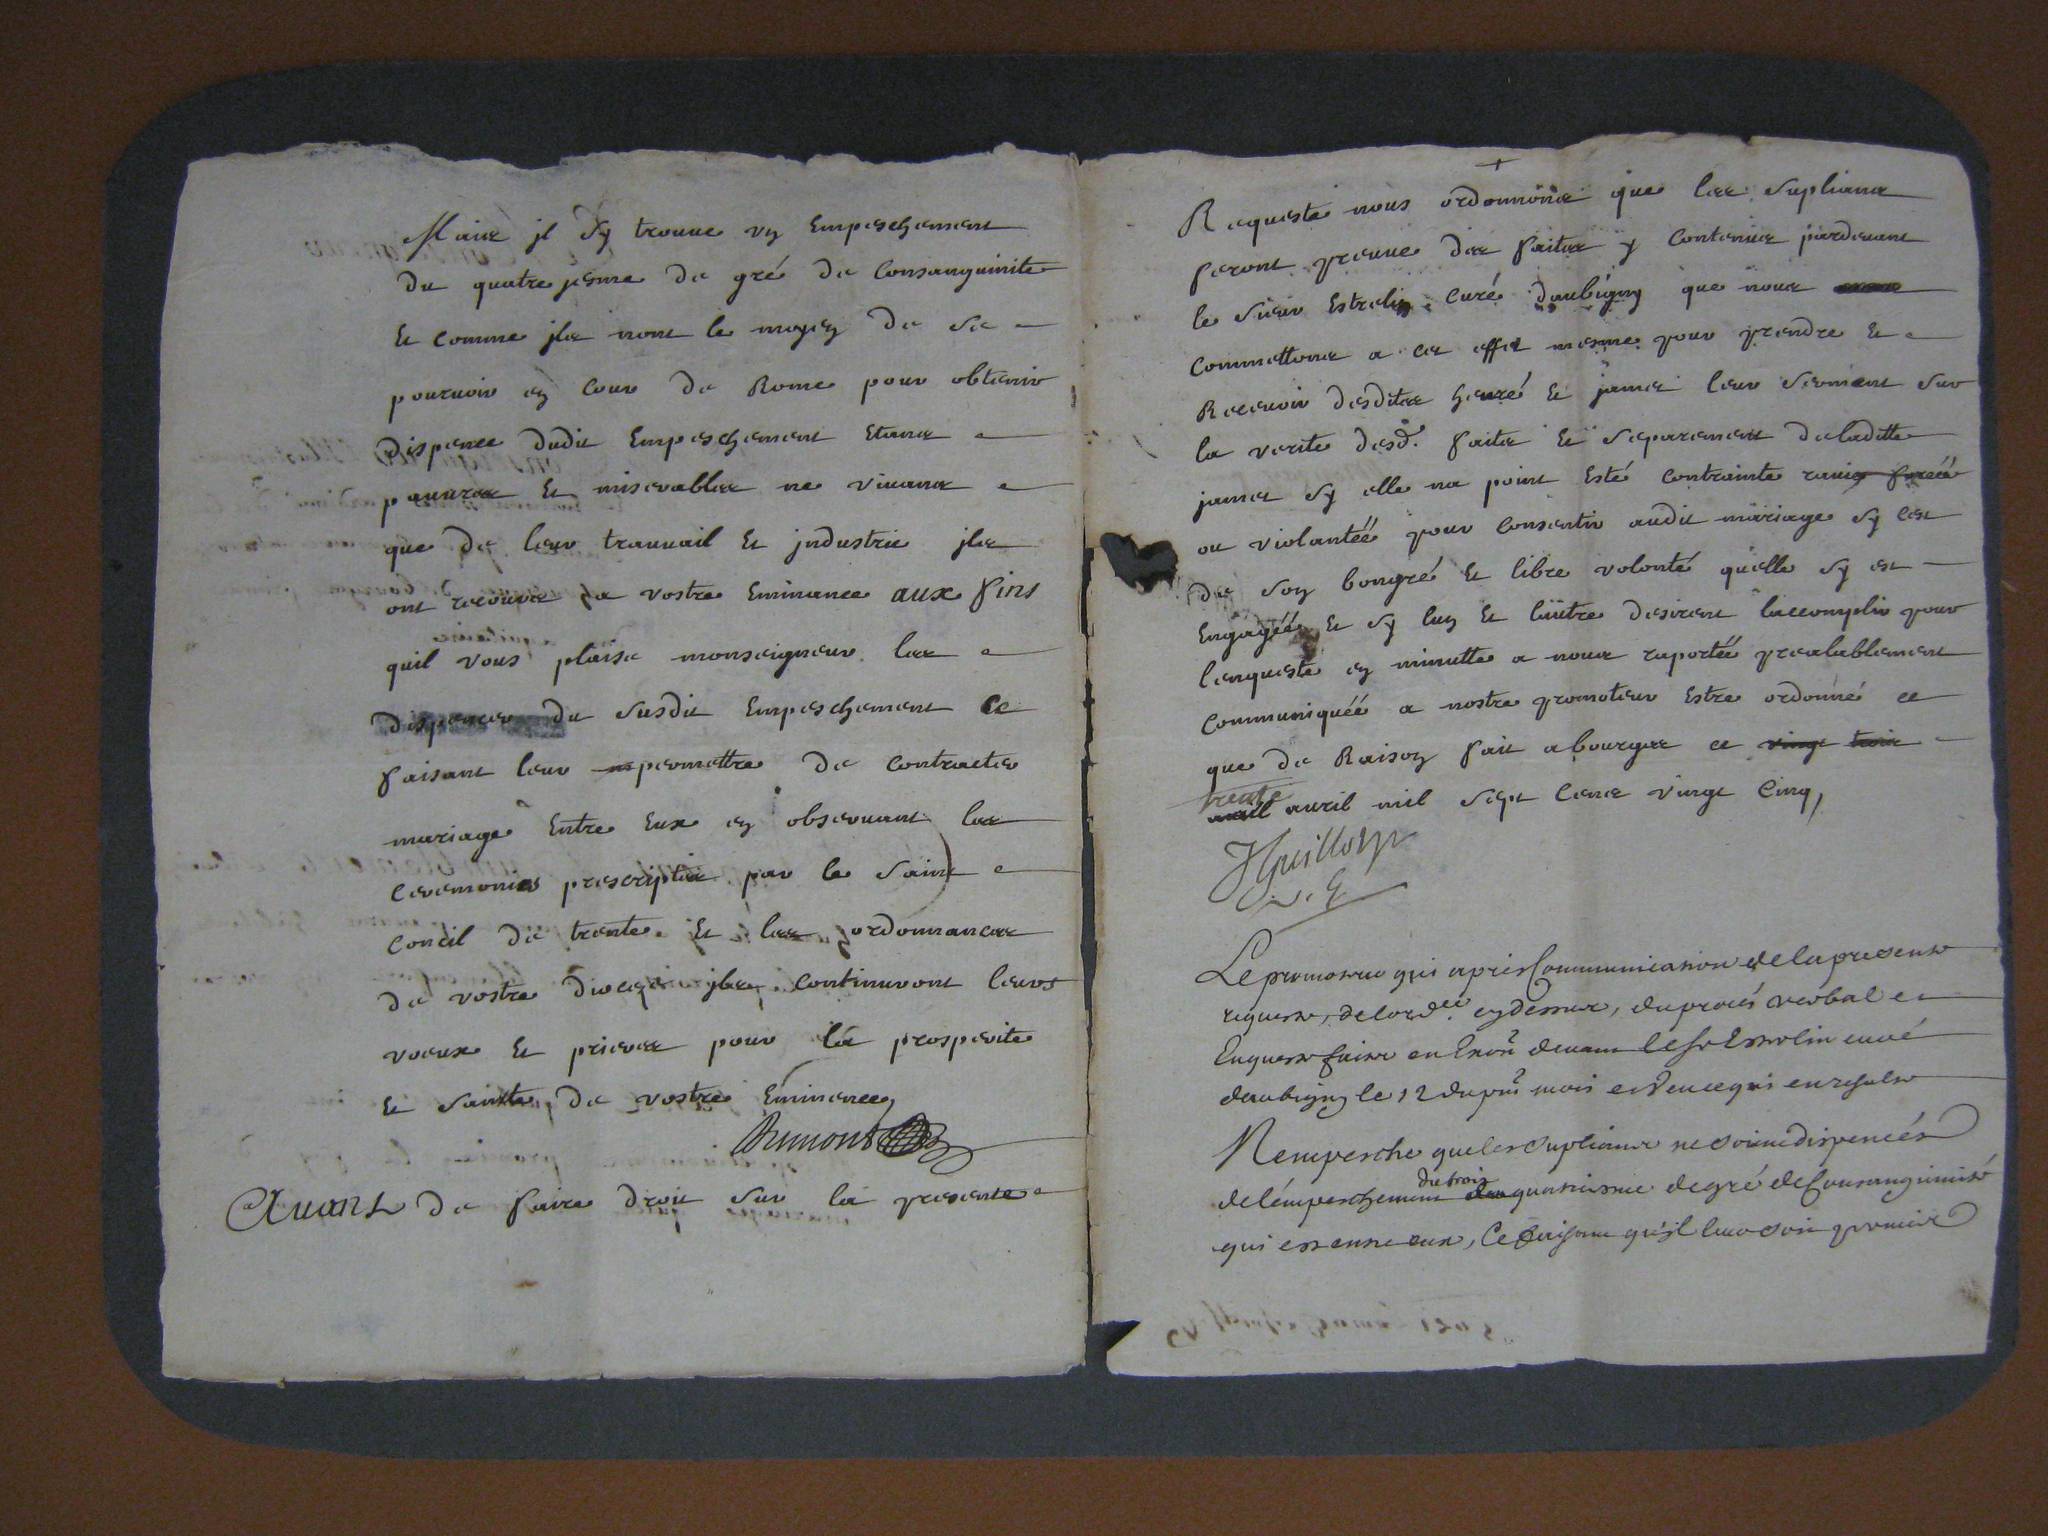 Mais jl sy trouue vn Empeschement
du quatre jesme de gré de Consanguinite
Et comme jls nont le moyen de se
pouruoir en Cour de Rome pour obtenir
dispence dudit Empeschement Etans
pauures Et miserables ne viuans
que de leur trauuail Et jndustrie jls
ont recours a vostre Eminance aux fins
quil vous plaise monseigneur les
dispencer du susdit Empeschement Ce
faisant leur permettre de Contracter
mariage Entre Eux en obseruant les
Ceremonies prescriptes par le saint
Concil de trente Et les ordonnances
de vostre diocese jls Continuront leurs
voeux Et prieres pour la prosperite
Et sainte de vostre Eminence,
Dumont
Auant de faire droit sur la presente
Requeste nous ordonnons que les supliants
feront preuue des faites y Contenus pardeuant
le sieur Estrelin Curé daubigny que nous
Commettons a cet effet mesme pour prendre Et
Receuoir desdites henré Et james leur serment sur
la verite desd. faits Et separement deladitte
james sy elle na point Esté Contrainte rauie forcéé
ou violantéé pour Consentir audit mariage sy cest
de son bongré Et libre volonté quelle sy est
Engagéé Et sy lun Et lautre desirent laccomplir pour
lenqueste en minutte a nous raportéé prealablement
Communiquéé a nostre promoteur Estre ordonné ce
que de Raison fait a bourges ce vingt trois
trente
auril mil sept Cens vingt Cinq,
Guillon
v. g
Le promoteur qui apres Communication de la presente
requeste, de lord.ce cy dessus, du procés verbal et
Enqueste faite en devant le sr Estrelin curé
daubigny le 12 du mois et de ce qui en resulte
Nempesche que les supliants ne soient dispencés
du trois
de lémpeschement au quatriesme degré de Consanguinité
qui est entre eux, Ce faisant qu'jl leur soit permis